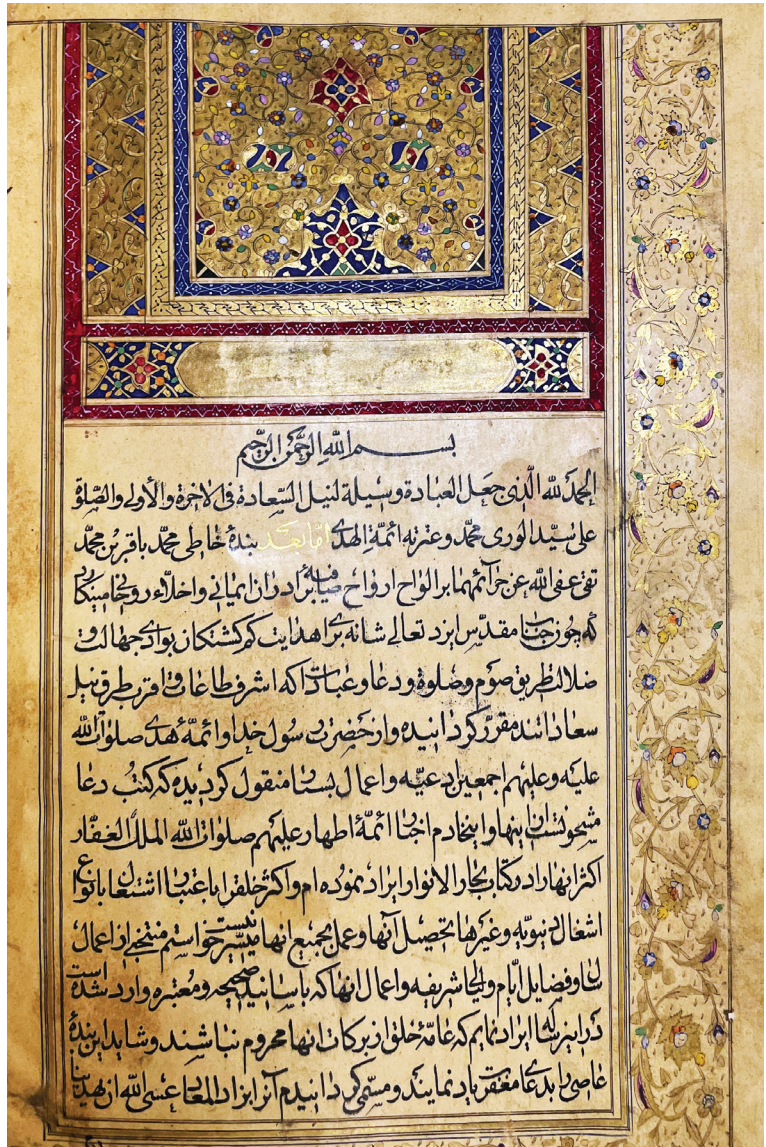 بسم الله الرحمن الرحيم
الحمد لله الذى جعل العبادة وسيلة لنيل السعادة فى الاخرة والاولى والصلوة
على سيد الورى محمد وعترته ائمة الهدى اما بعد بندۀ خاطى محمد باقر بن محمد
تقى عفى الله عن جرائمهما بر الواح ارواح صافيه برادران ايمانى و اخلاء روحانى مينكارد
كه چون جناب مقدس ايزد تعالى شانه براى هدايت كم كشتكان بوادى جهالت و
ضلالت طريق صوم وصلوة ودعا وعبادات را كه اشرف طاعات و اقرب طرق نيل
سعاداتند مقرر كردانيده و از حضرت رسول خدا و ائمۀ هدى صلوات الله
عليه وعليهم اجمعين ادعيه واعمال بسيار منقول كرديده كه كتب دعا
مشحونست از اينها و اينخادم اخبار ائمۀ اطهار عليهم صلوات الله الملك الغفار
اكثر انها را در كتاب بحار الانوار ايراد نموده ام و اكثر خلق را باعتبار اشتغال بانواع
اشغال دنيويه وغيرها تحصيل آنها وعمل بجميع انها ميسر نيست خواستم منتخبى از اعمال
سال و فضايل ايام وليالى شريفه و اعمال انها كه باسانيد صحيحه ومعتبره وارد شده است
در اين رساله ايراد نمايم كه عامۀ خلق از بركات انها محروم نباشند و شايد اين بندۀ
عاصى را بدعاى مغفرت ياد نمايند ومسمى كردانيدم آنرا بزاد المعاد عسى الله ان يهدينا